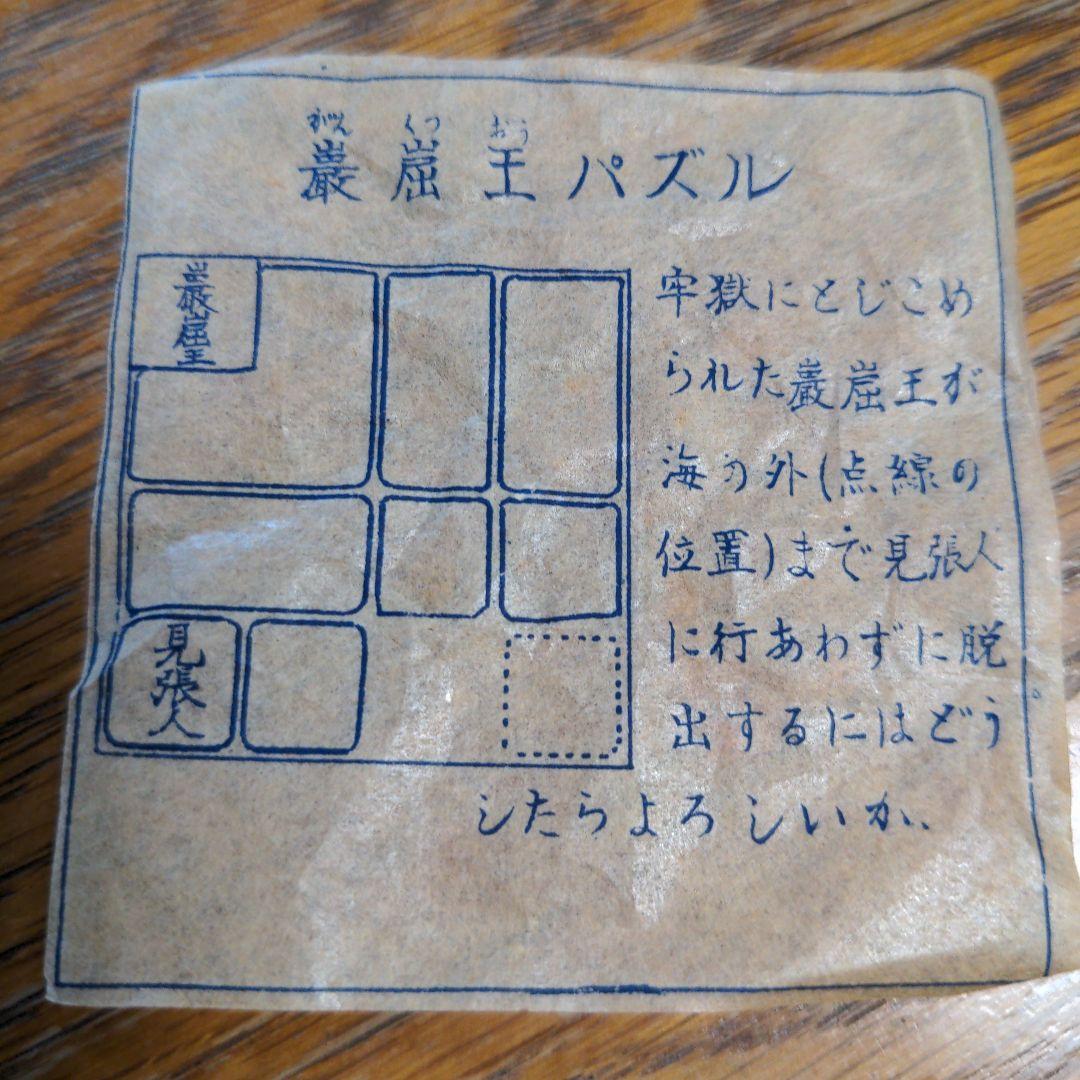 がん くつ おう
巌窟王パズル
巌窟王
見張人
牢獄にとじこめ
られた巌窟王が
海の外(点線の
位置)まで見張人
に行あわずに脱
出するにはどう
したらよろしいか、